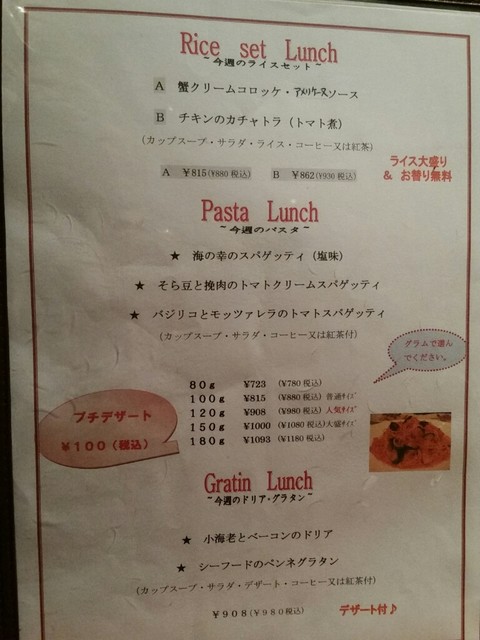 Rice set Lunch
~今週のライスセット~
A 蟹クリームコロッケ・アメリケーヌソース
B チキンのカチャトラ(トマト煮)
(カップスープ・サラダ・ライス・コーヒー又は紅茶)
A ¥815(¥880 税込) B ¥862(¥930 税込)
ライス大盛り
& お替り無料
Pasta Lunch
~今週のパスタ~
★ 海の幸のスパゲッティ(塩味)
★ そら豆と挽肉のトマトクリームスパゲッティ
★ バジリコとモッツァレラのトマトスパゲッティ
(カップスープ・サラダ・コーヒー又は紅茶付)
グラムで選ん
でください。
80g ¥723 (¥780 税込)
100g ¥815 (¥880 税込) 普通サイズ
120g ¥908 (¥980 税込) 人気サイズ
150g ¥1000 (¥1080 税込)大盛サイズ
180g ¥1093 (¥1180 税込)
プチデザート
¥100(税込)
Gratin Lunch
~今週のドリア・グラタン~
★ 小海老とベーコンのドリア
★ シーフードのペンネグラタン
(カップスープ・サラダ・デザート・コーヒー又は紅茶付)
¥908(¥980税込)
デザート付♪